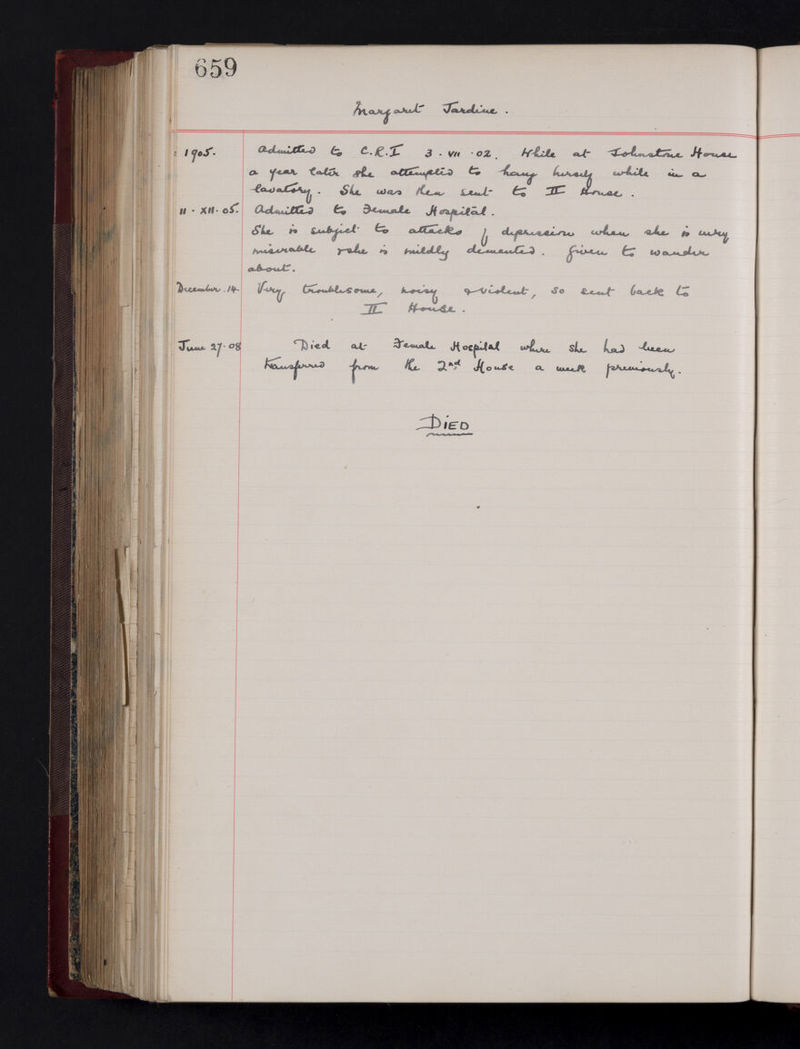 659
Margaret Jardine.
1905. Admitted to C.R.I 3.VII.02. While at Johnstone House
a year later she attempted to hang herself while in a
lavatory. She was then sent to II House.
11.XII.05. Admitted to Female Hospital.
She is subject to attacks of depression when she is very
miserable & she is mildly demented. Given to wander
about.
December.14. Very troublesome, noisy & violent, so sent back to
II House.
June 27.08 Died at Female Hospital where she had been
transferred from the 2nd House a week previously.
DIED